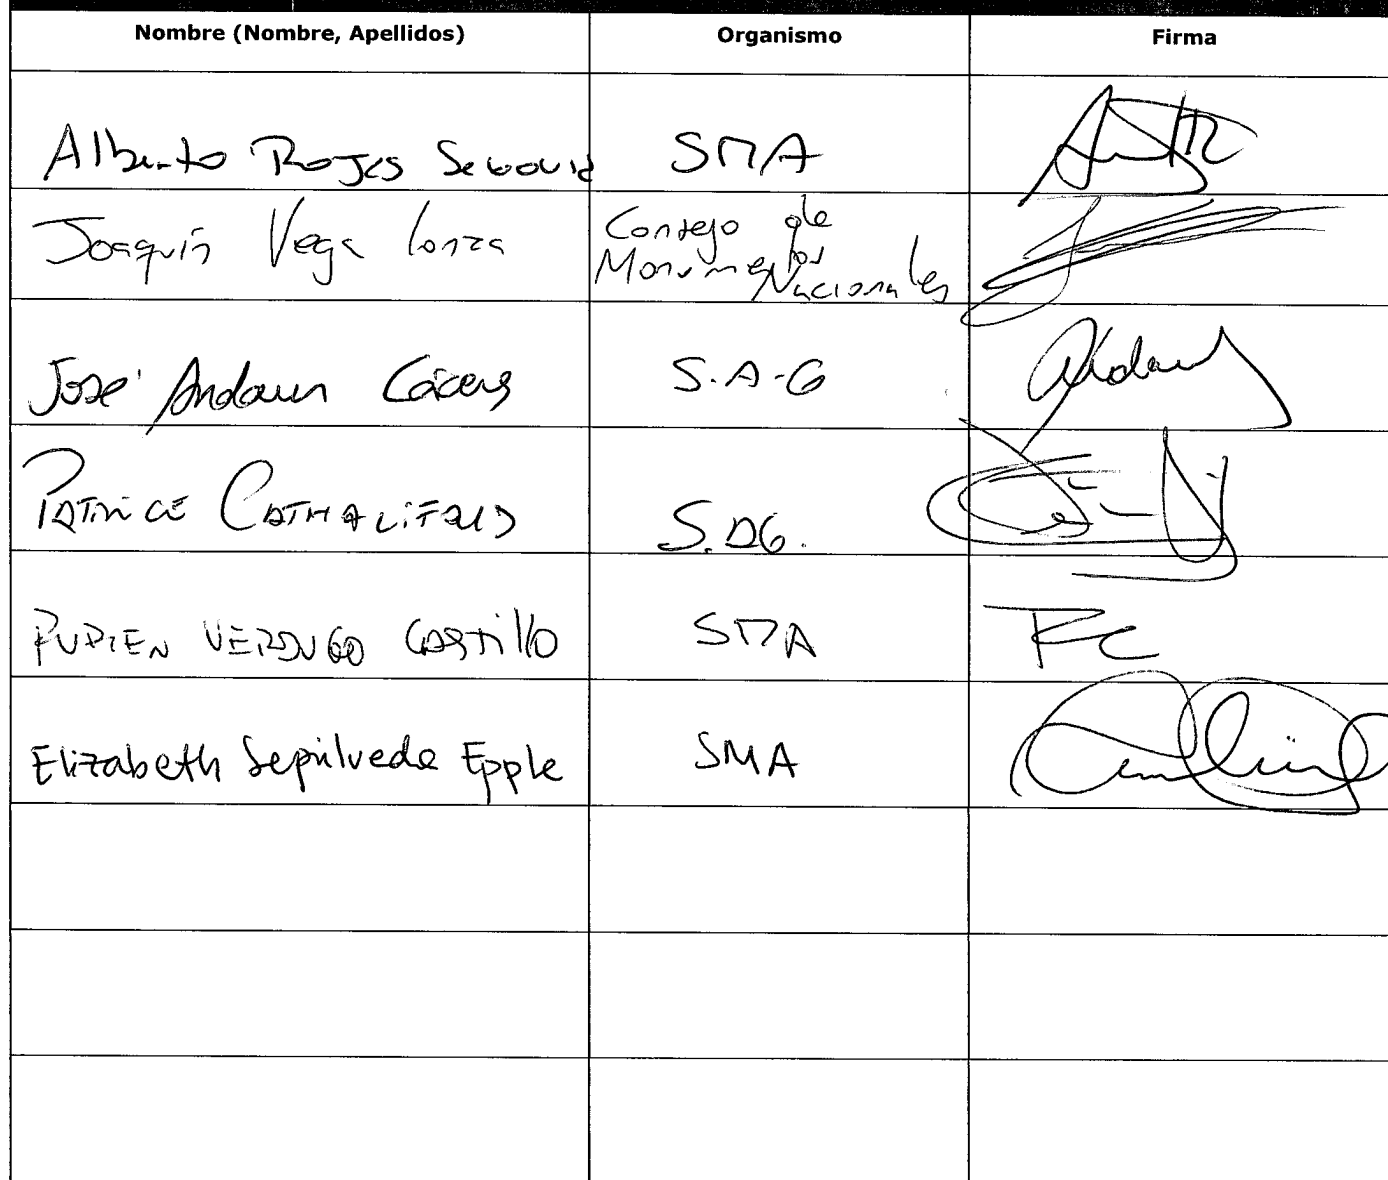 Nombre (Nombre, Apellidos) Organismo Firma
Alberto Rojas Segovia SMA
Joaquín Vega Consejo de
Monumentos
Nacionales
José Andaur Cáceres S.A.G
PATRICE CATHALIFAUD S.AG.
RUBIEN VERDUGO CASTillo SMA
Elizabeth Sepúlveda Epple SMA